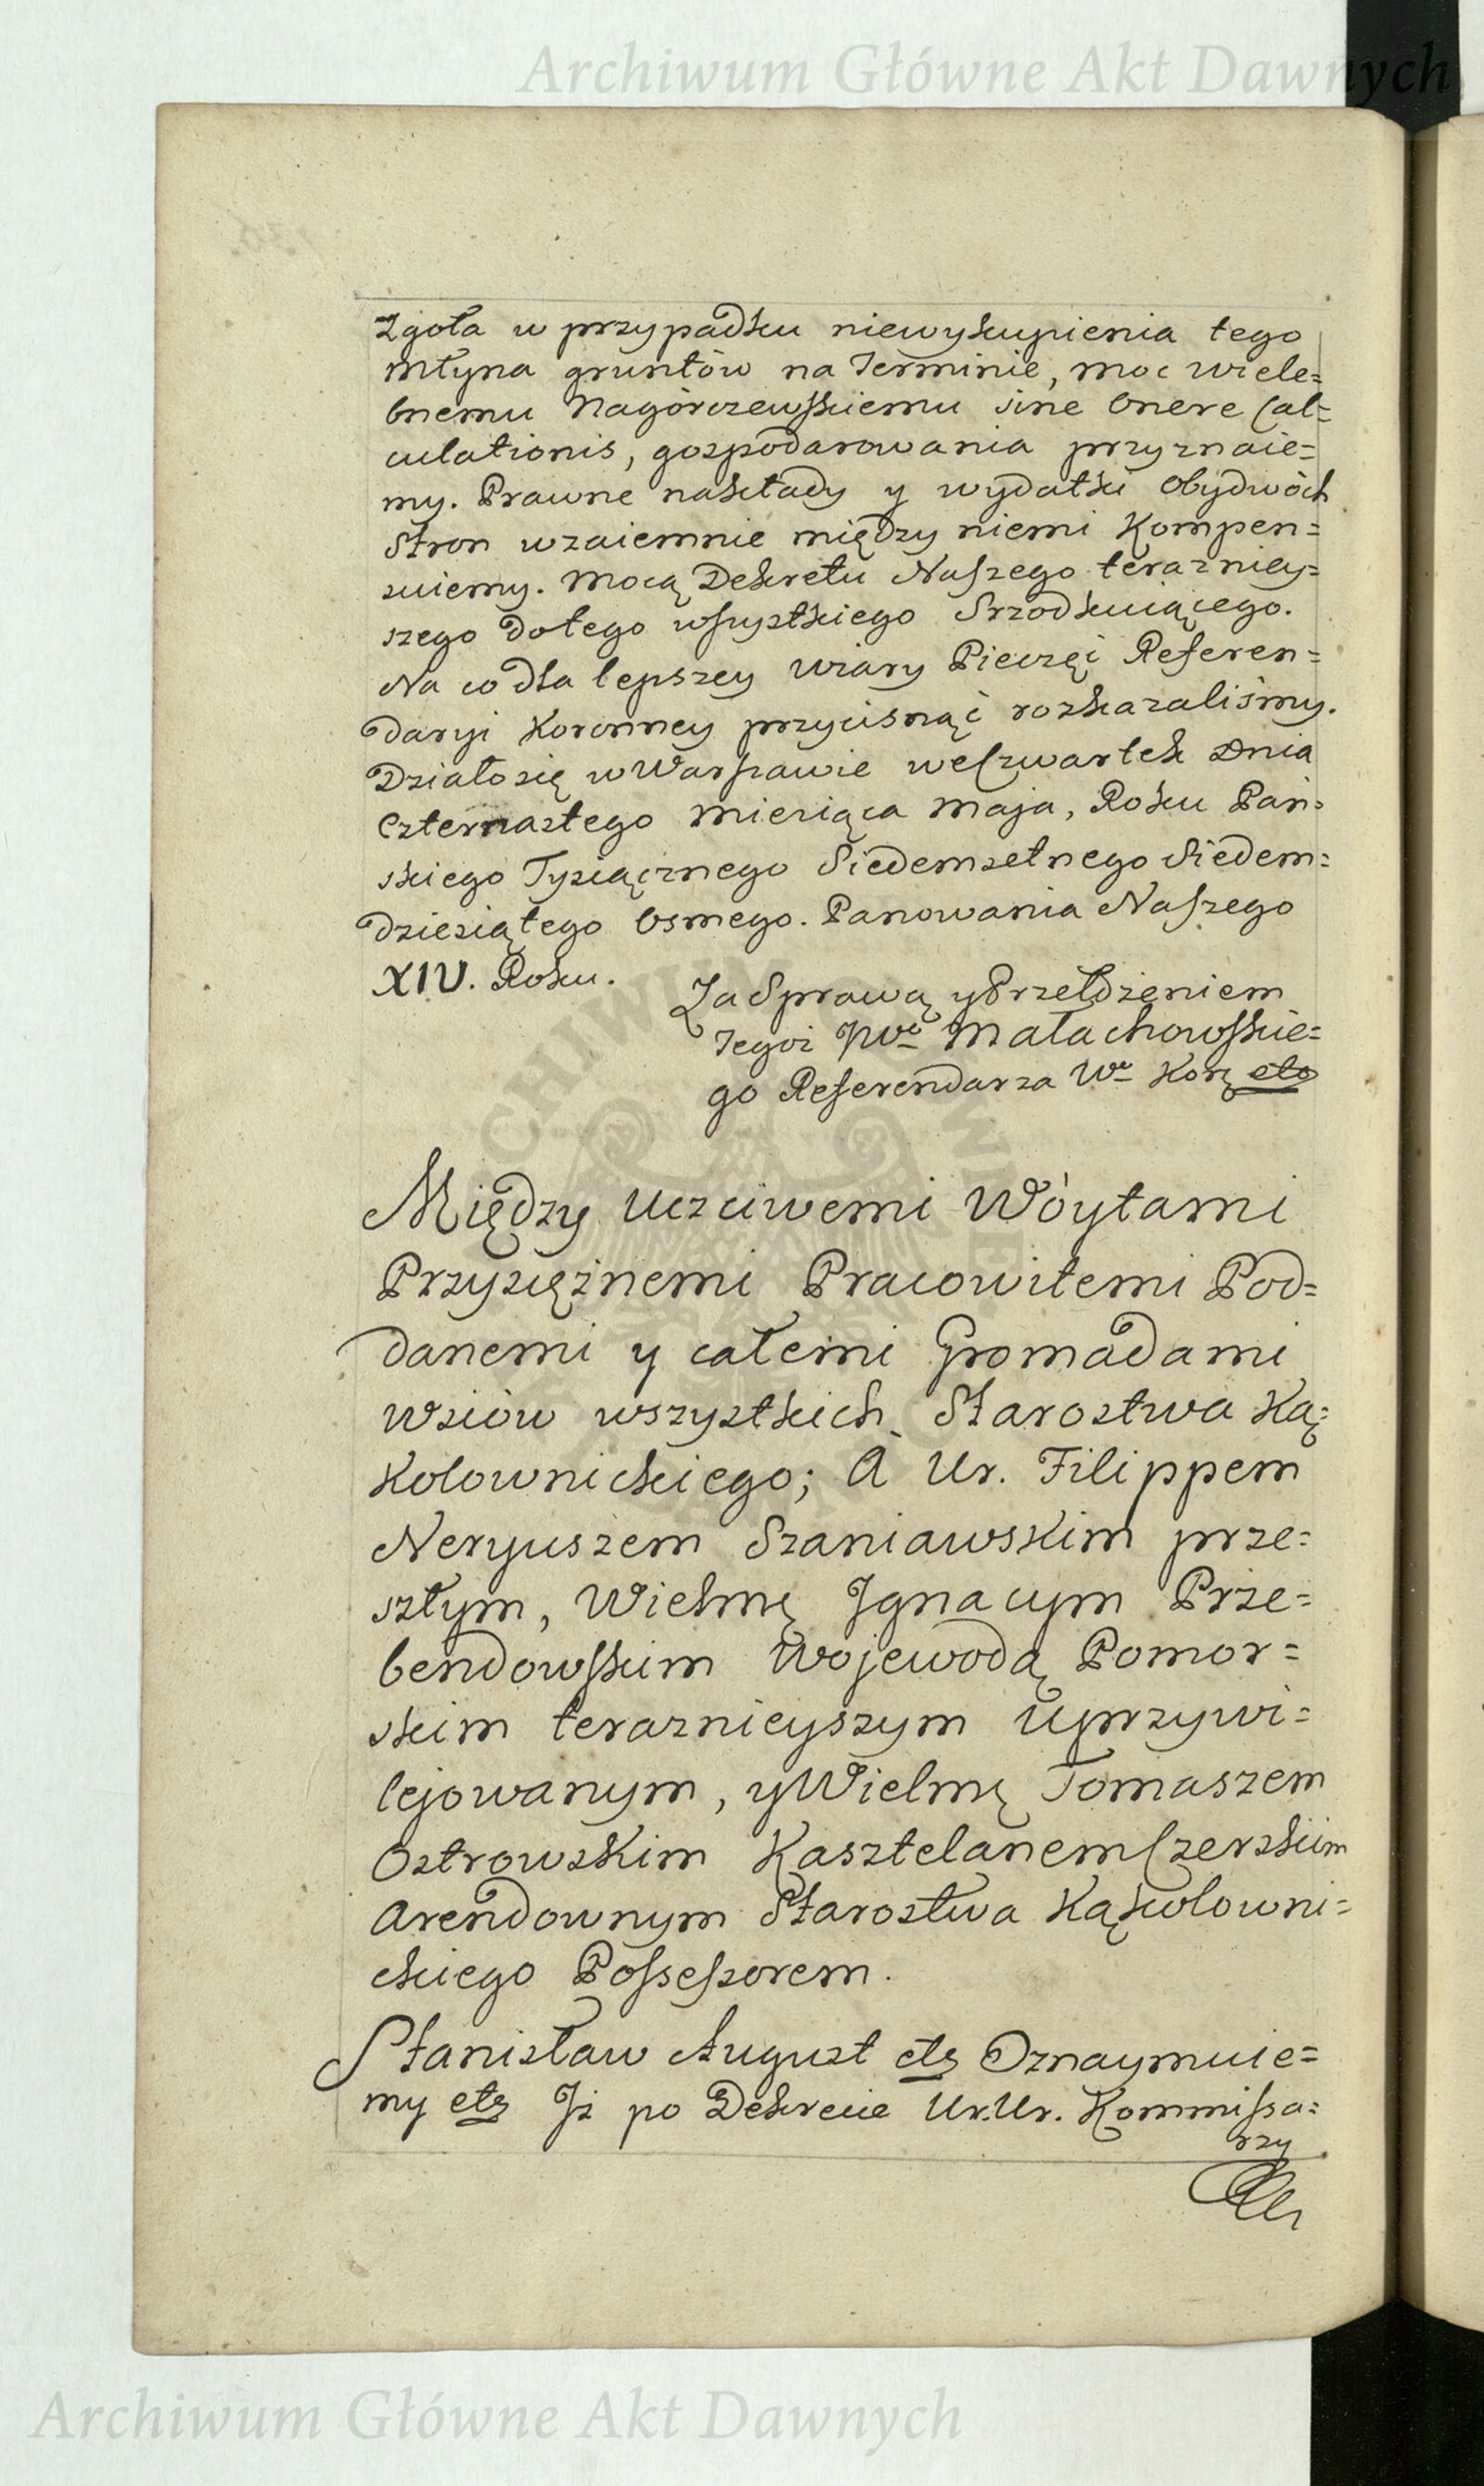 Archiwum Główne Akt Dawnych
Zgoła w przypadku niewykupienia tego
Młyna gruntów na Terminie, moc Wiele=
bnemu Nagórczewskiemu sine Onere Cal=
culationis, gospodarowania przyznaie=
my. Prawne nakłady y wydatki Obydwóch
Stron wzaiemnie między niemi Kompen=
suiemy. Mocą Dekretu Naszego teraźniey=
szego dotego wszystkiego Srzodkuiącego.
Na co dla lepszey Wiary Pieczęć Referen=
daryi Koronney przycisnąć rozkazaliśmy.
Działo się w Warszawie we Czwartek Dnia
Czternastego Miesiąca Maja, Roku Pań=
skiego Tysiącznego Siedemsetnego Siedem=
dziesiątego Osmego. Panowania Naszego
XIV. Roku.
Za Sprawą y Przełożeniem
Jegoż JWo Małachowskie=
go Referendarza Wo Korg etc
Między Uczciwemi Wóytami
Przysiężnemi Pracowitemi Pod=
danemi y całemi Gromadami
Wsiów wszystkich Starostwa Ką=
Kolownickiego; A Ur. Filippem
Neryuszem Szaniawskim prze=
szłym, Wielmę Ignacym Prze=
bendowskim Wojewodą Pomor=
skim teraznieyszym Uprzywi=
lejowanym, y Wielmę Tomaszem
Ostrowskim Kasztelanem Czerskim
Arendownym Starostwa Kąkolowni=
ckiego Possessorem.
Stanisław August etc Oznaymuie=
my etc Iż po Dekrecie Ur.Ur. Kommissa=
rzy
Archiwum Główne Akt Dawnych